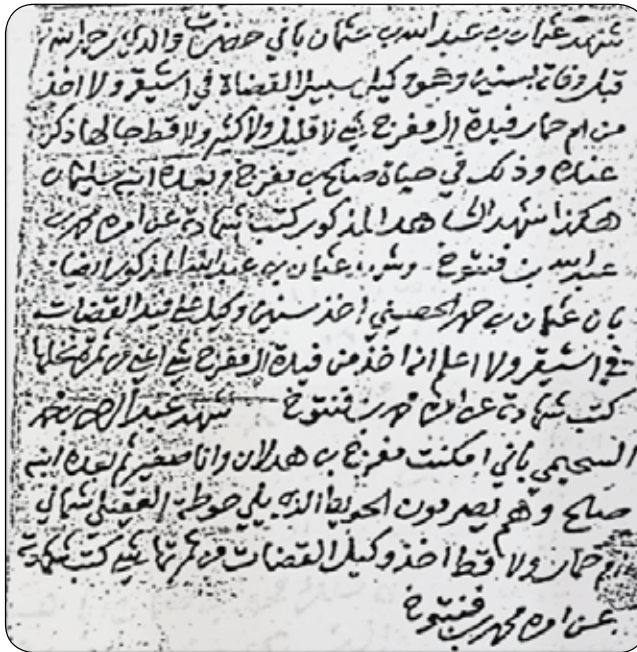 شهد عثمان بن عبدالله بن عثمان باني حضرت والدي رحمه الله
قبل وفاته بسنين وهو وكيل سبيل القضاة في اشيقر ولا اخذ
من ام حمار فيدة ال مفرح شي لا قليل ولا كثير ولا قط حالها ذكر
عنده وذلك في حياة صالح بن مفرح وبعده ابنه سليمان
هكذا شهد الشاهد المذكور كتب شهادته عن امره محمد بن
عبدالله بن فنتوخ وشهد عثمان بن عبدالله المذكور ايضا
بان عثمان بن حمد الحصيني اخذ سنين وكيل على فيد القضات
في اشيقر ولا اعلم انه اخذ من فيدة ال مفرح شي اعني من ثمرة نخلها
كتب شهادته عن امره محمد بن فنتوخ شهد عبدالرحمن بن
السحيمي باني امكنت مفرح بن هدلان وانا صغير ثم بعده ابنه
صالح وهم يصرمون الحويط الذي يلي حوطة العقيلي شمالي
ام حمار ولا قط اخذ وكيل القضات من ثمرتها شي كتب شهادته
عن امره محمد بن فنتوخ